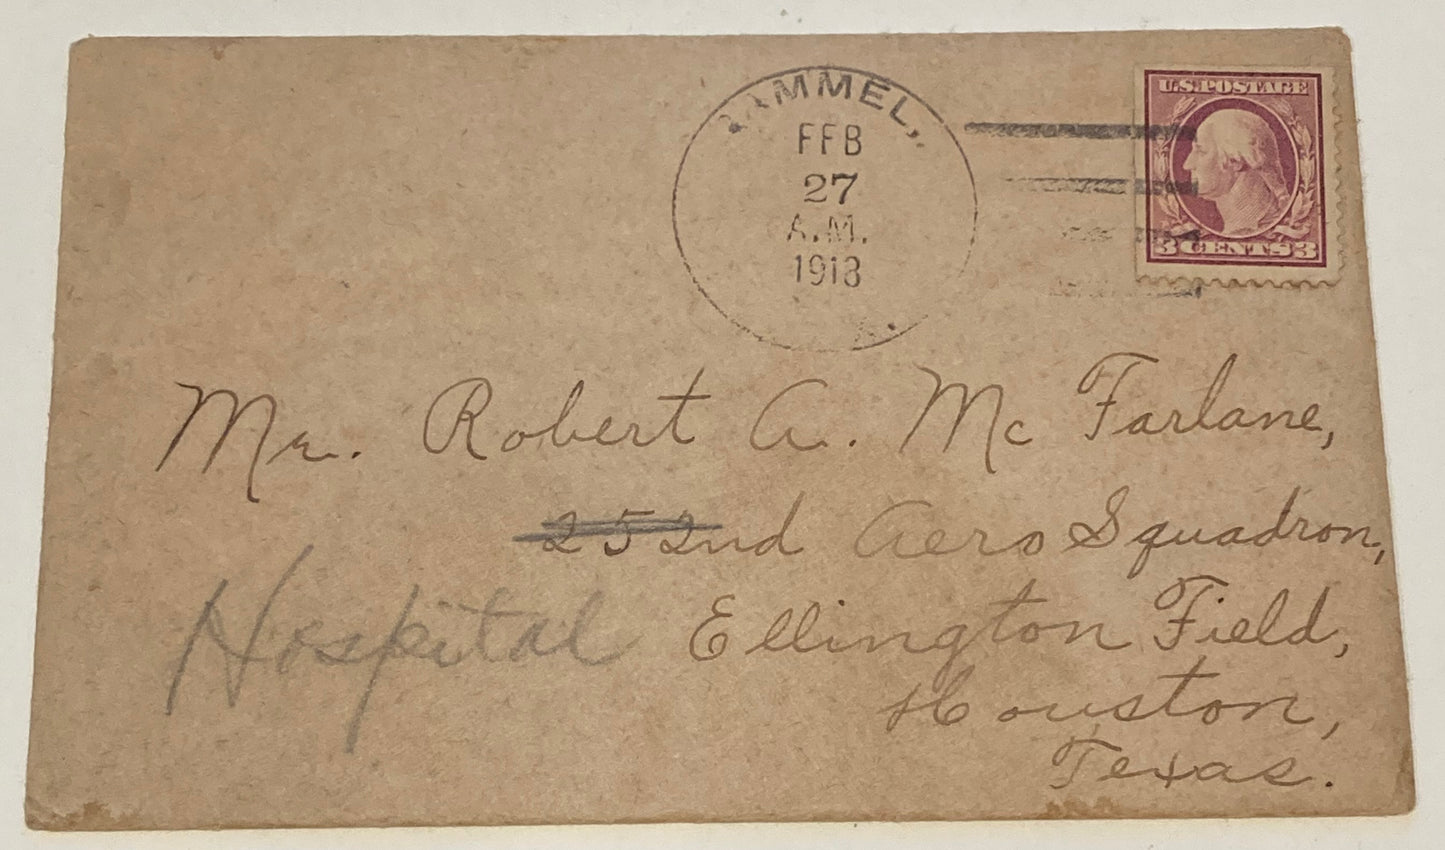 AMMEL,
FEB
27
A.M.
1918
U.S. POSTAGE
3 CENTS 3
Mr. Robert A. Mc Farlane,
252nd Aero Squadron,
Hospital Ellington Field,
Houston,
Texas.